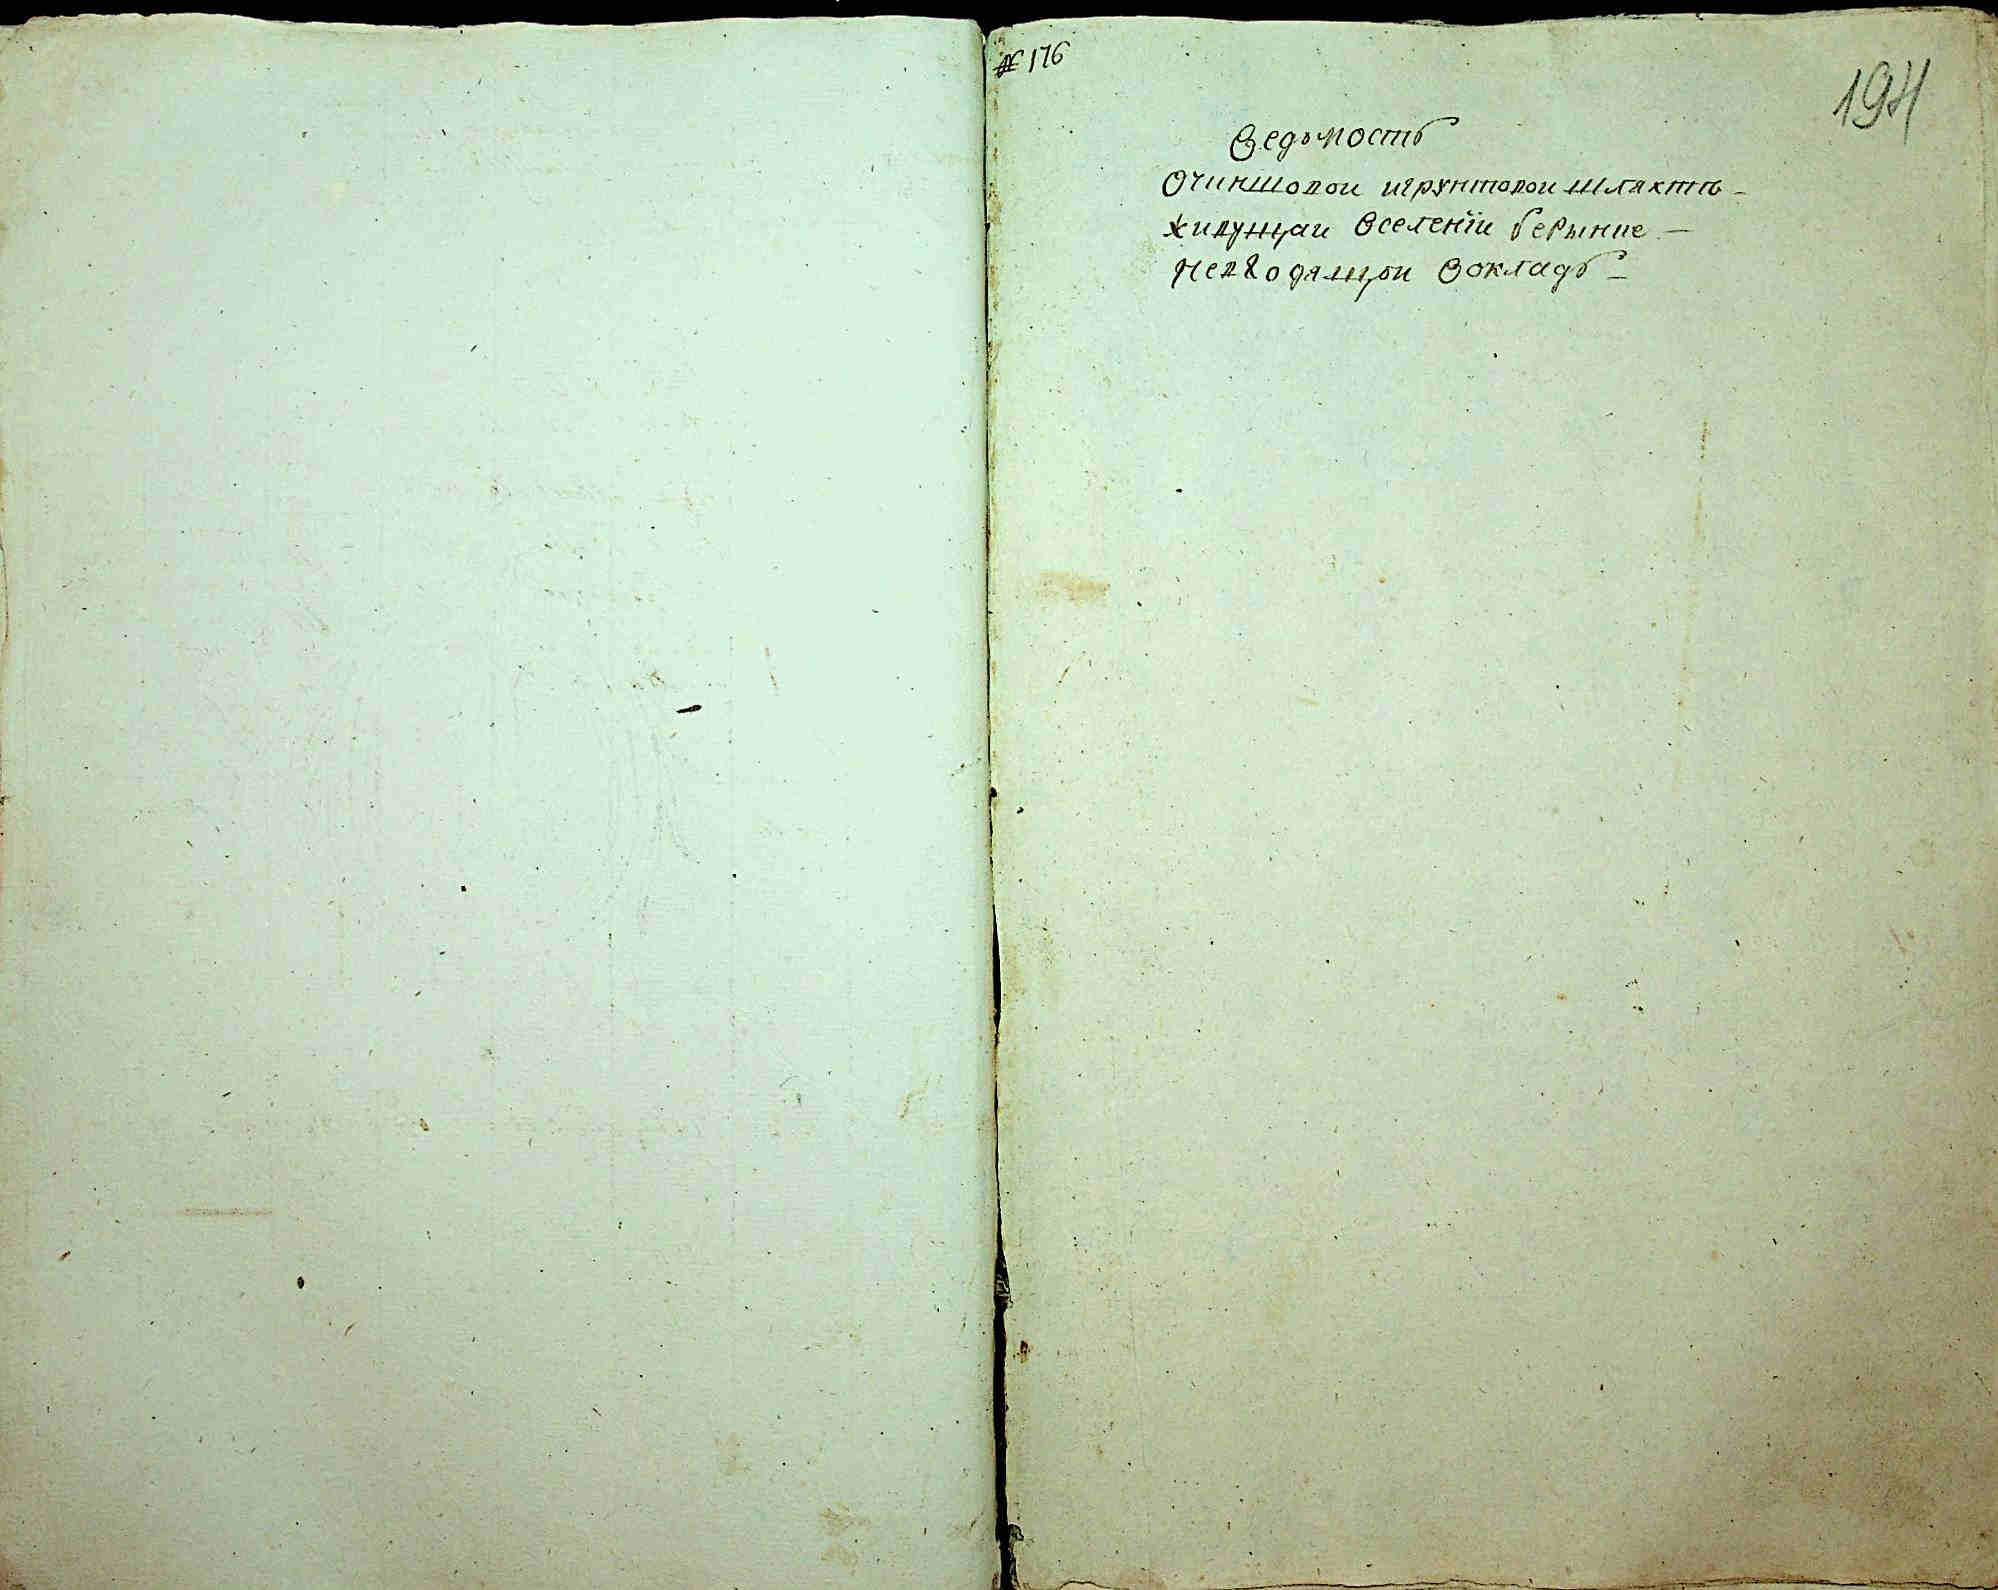 № 176
194
Ведомость
О чиншовои и грунтовои шляхтѣ
живущаи в селенїи берынке
не входящои в окладъ